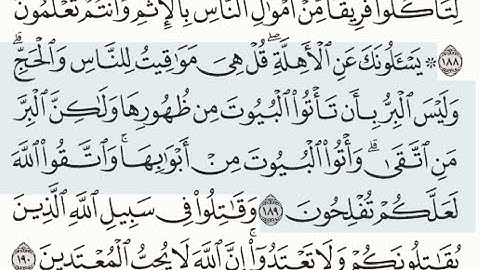 لِتَأْكُلُوا۟ فَرِيقًا مِّنْ أَمْوَٰلِ ٱلنَّاسِ بِٱلْإِثْمِ وَأَنتُمْ تَعْلَمُونَ
١٨٨ ۞ يَسْـَٔلُونَكَ عَنِ ٱلْأَهِلَّةِ ۖ قُلْ هِىَ مَوَٰقِيتُ لِلنَّاسِ وَٱلْحَجِّ ۗ
وَلَيْسَ ٱلْبِرُّ بِأَن تَأْتُوا۟ ٱلْبُيُوتَ مِن ظُهُورِهَا وَلَٰكِنَّ ٱلْبِرَّ
مَنِ ٱتَّقَىٰ ۗ وَأْتُوا۟ ٱلْبُيُوتَ مِنْ أَبْوَٰبِهَا ۚ وَٱتَّقُوا۟ ٱللَّهَ
لَعَلَّكُمْ تُفْلِحُونَ ١٨٩ وَقَٰتِلُوا۟ فِى سَبِيلِ ٱللَّهِ ٱلَّذِينَ
يُقَٰتِلُونَكُمْ وَلَا تَعْتَدُوٓا۟ ۚ إِنَّ ٱللَّهَ لَا يُحِبُّ ٱلْمُعْتَدِينَ ١٩٠